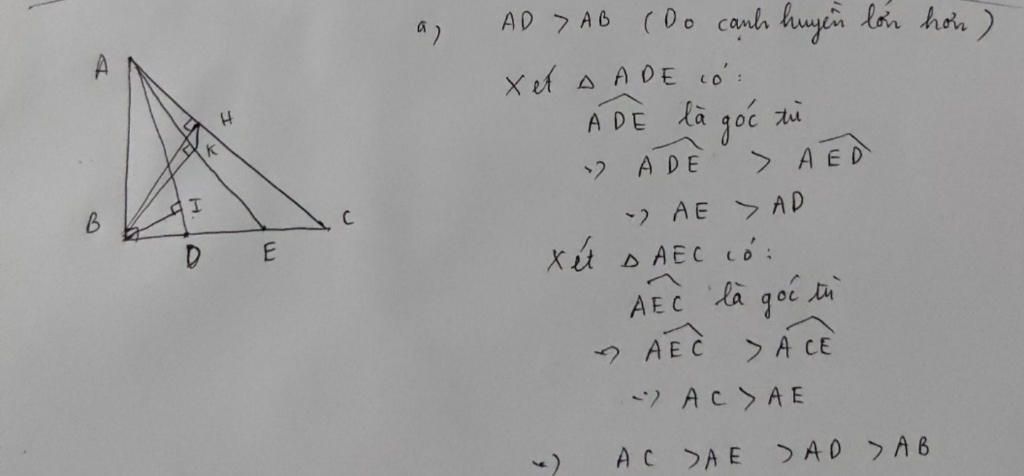 a, AD > AB (Do cạnh huyền lớn hơn)
Xét △ ADE có:
\widehat{ADE} là góc tù
=> \widehat{ADE} > \widehat{AED}
=> AE > AD
Xét △ AEC có:
\widehat{AEC} là góc tù
=> \widehat{AEC} > \widehat{ACE}
=> AC > AE
=> AC > AE > AD > AB
A
H
K
B
I
C
D
E